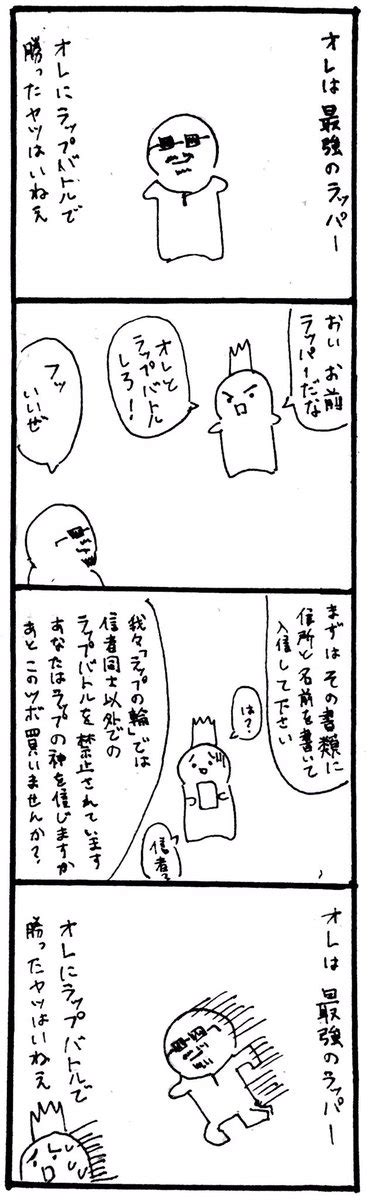 オレは最強のラッパー
オレにラップバトルで
勝ったヤツはいねえ
おい お前
ラッパーだな
オレと
ラップバトル
しろ!
フッ
いいぜ
まずはその書類に
住所と名前を書いて
入信して下さい
は?
信者?
我々「ラップの輪」では
信者同士以外での
ラップバトルを禁止されています
あなたはラップの神を信じますか
あとこのツボ買いませんか?
オレは最強のラッパー
オレにラップバトルで
勝ったヤツはいねえ